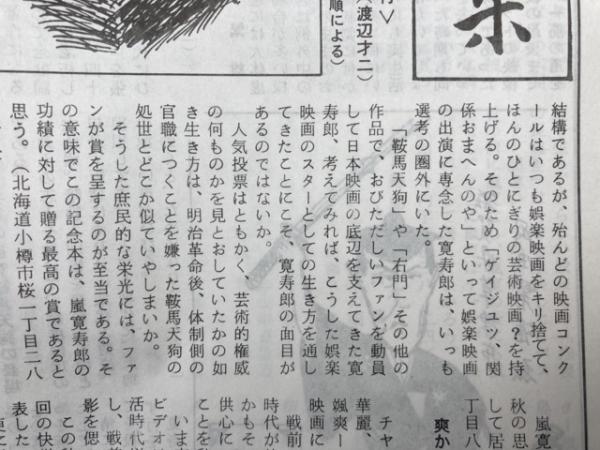 栄
行＞
（渡辺才二）
順による）
結構であるが、殆んどの映画コンク
ールはいつも娯楽映画をキリ捨てて、
ほんのひとにぎりの芸術映画？を持
上げる。そのため「ゲイジュツ、関
係おまへんのや」といって娯楽映画
の出演に専念した寛寿郎は、いつも
選考の圏外にいた。
「鞍馬天狗」や「右門」その他の
作品で、おびただしいファンを動員
して日本映画の底辺を支えてきた寛
寿郎、考えてみれば、こうした娯楽
映画のスターとしての生き方を通し
てきたことにこそ、寛寿郎の面目が
あるのではないか。
人気投票はともかく、芸術的権威
の何ものかを見とおしていたかの如
き生き方は、明治革命後、体制側の
官職につくことを嫌った鞍馬天狗の
処世とどこか似ていやしまいか。
そうした庶民的な栄光には、ファ
ンが賞を呈するのが至当である。そ
の意味でこの記念本は、嵐寛寿郎の
功績に対して贈る最高の賞であると
思う。（北海道小樽市桜一丁目二八
嵐寛
秋の思
して居
丁目八
爽か
チャ
華麗、
颯爽ー
映画に
戦前
時代が
かもそ
供心に
ことを
いま
ビデオ
活時代
し、戦
影を偲
この
回の快
表した